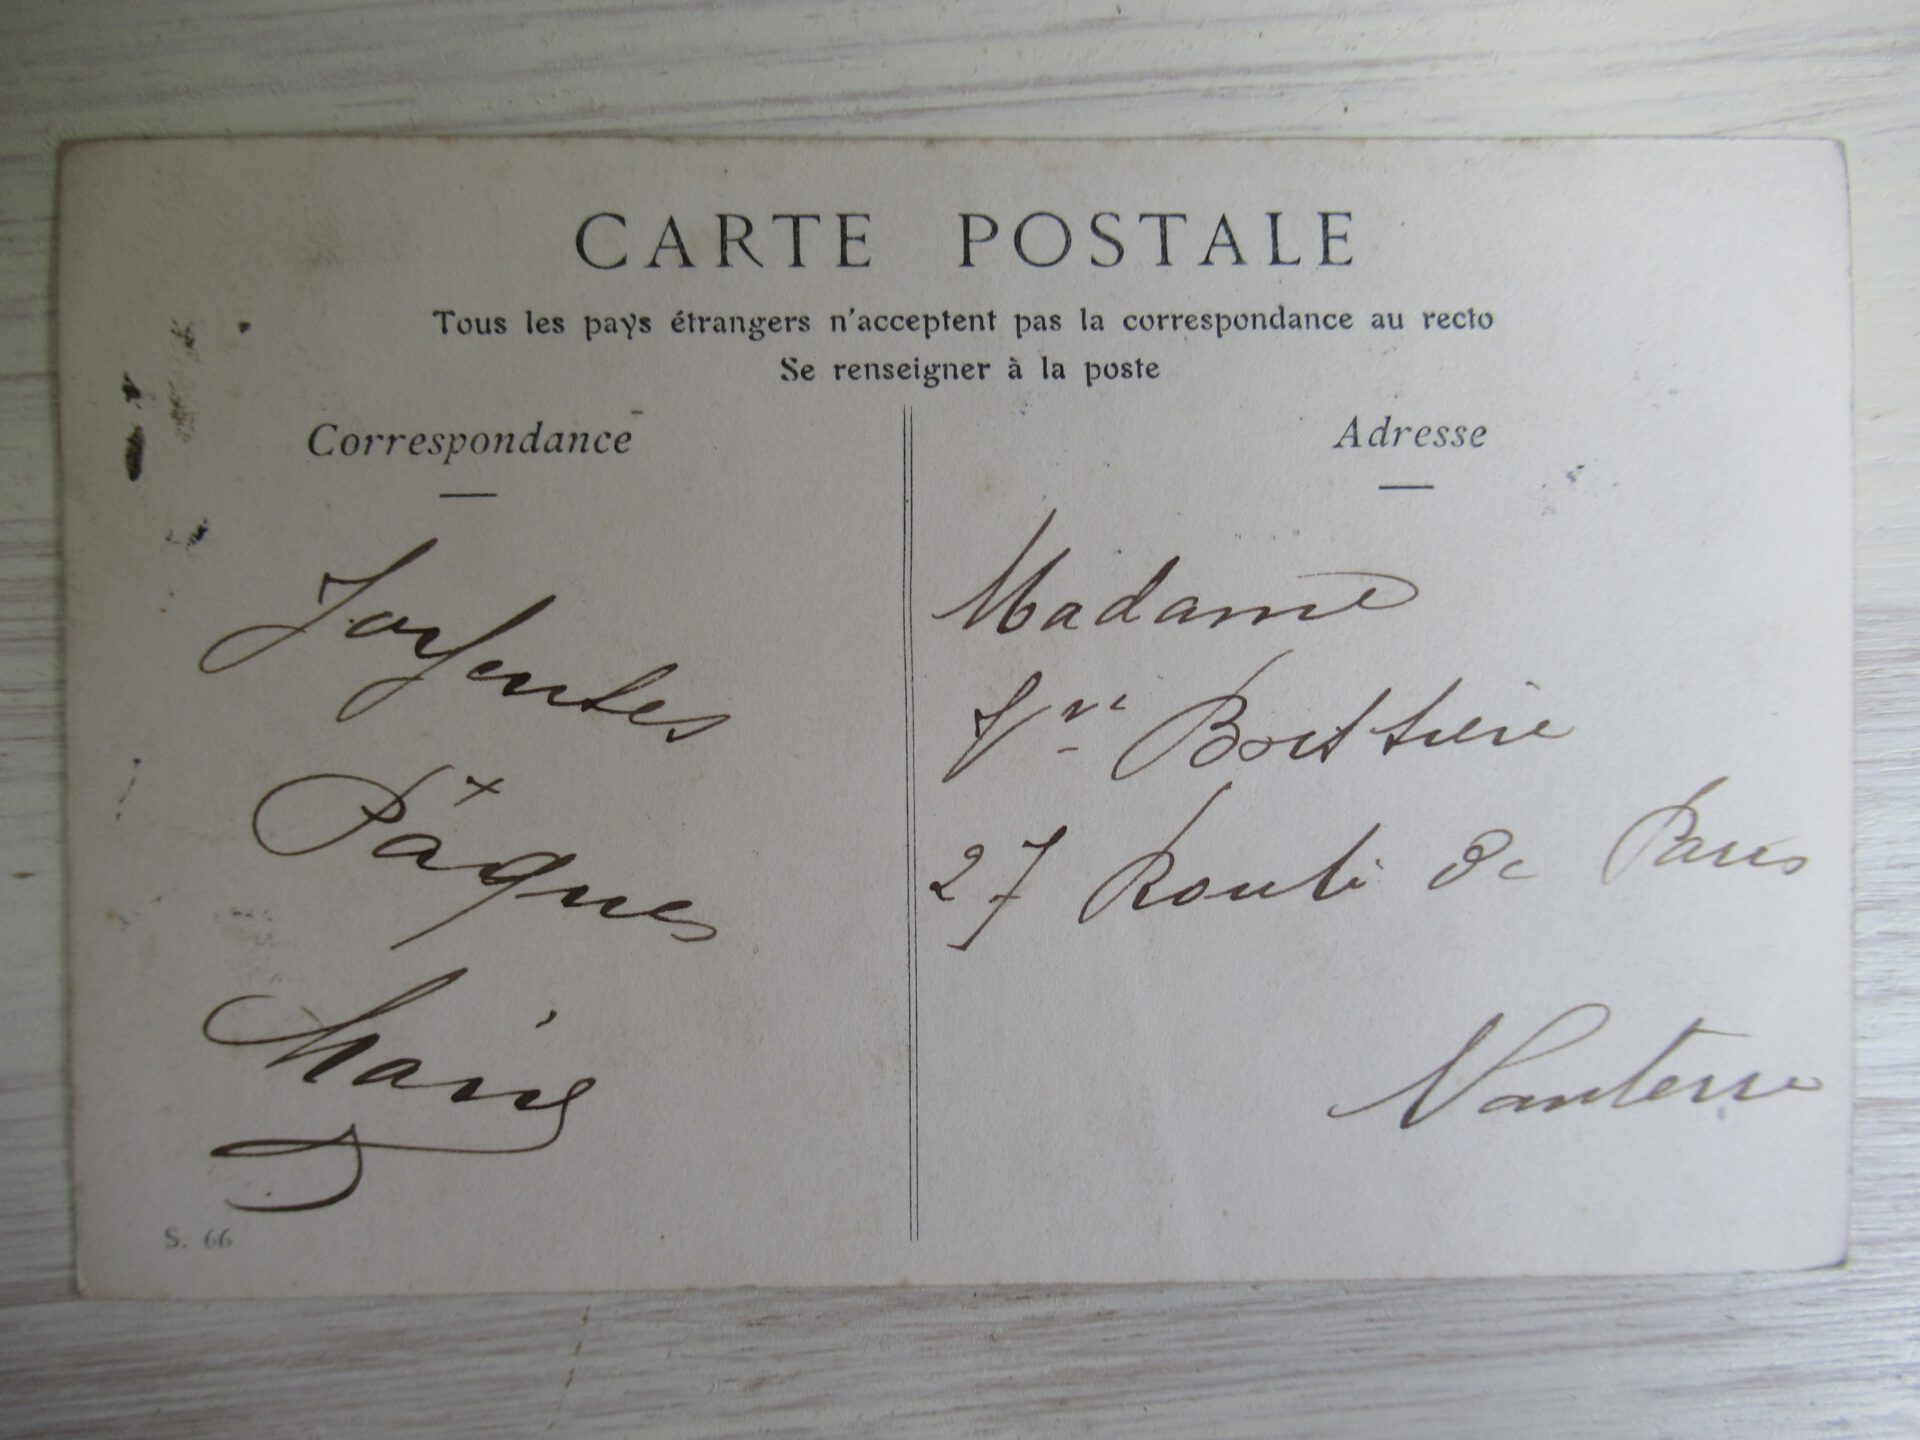 CARTE POSTALE
Tous les pays étrangers n'acceptent pas la correspondance au recto
Se renseigner à la poste
Correspondance
Joyeuses
Pâques
Marie
S. 66
Adresse
Madame
Vve
27 Route de Paris
Nanterre